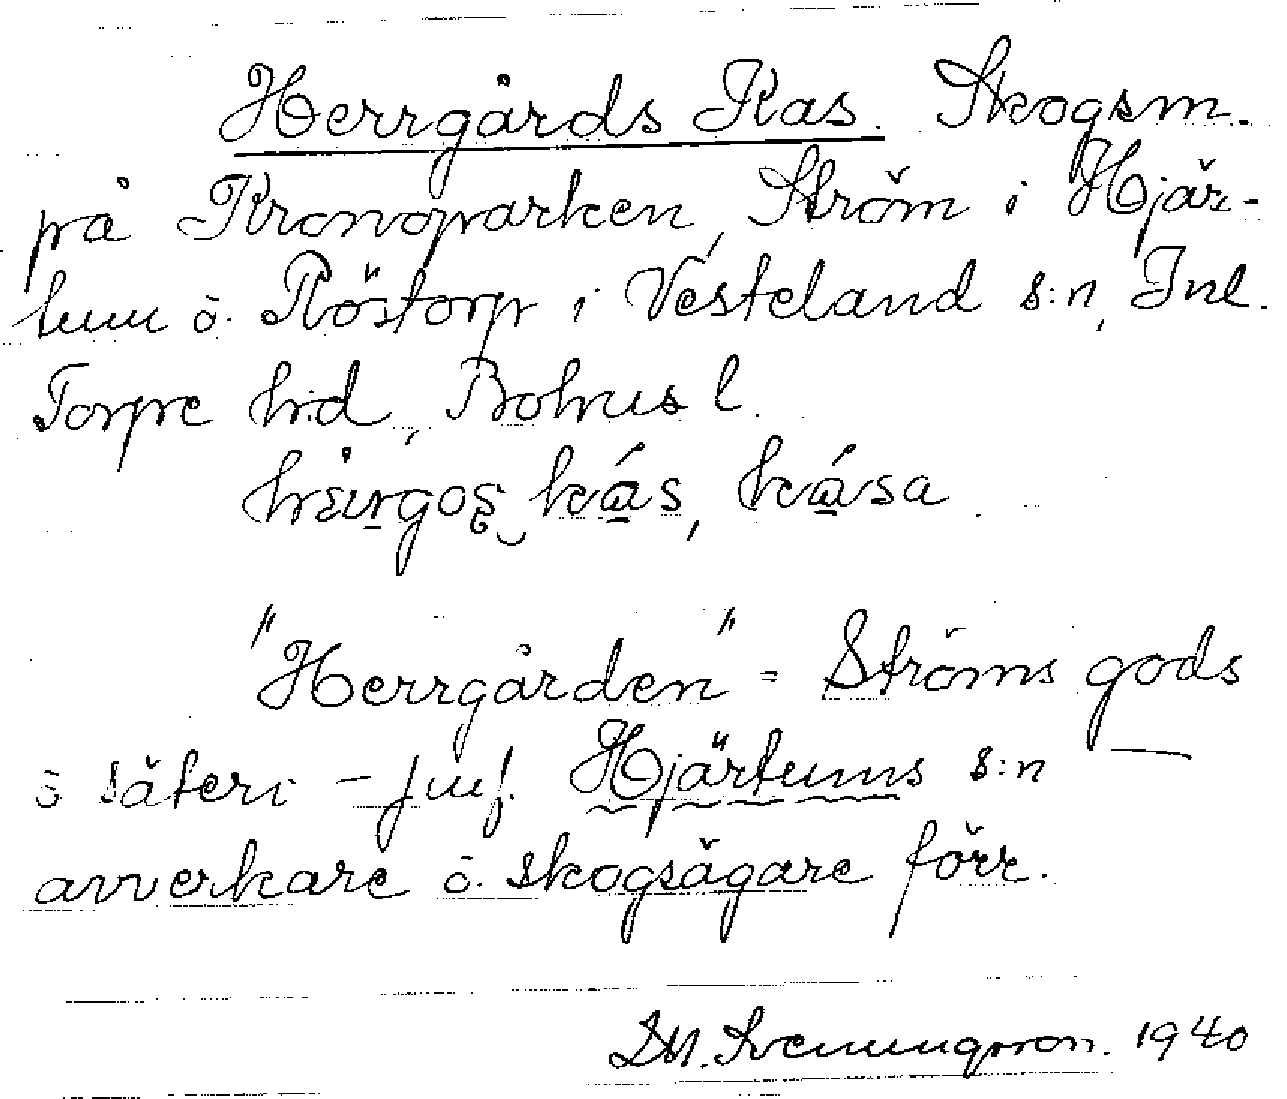 Herrgårds Kas. Skogsm.
på Kronoparken, Ström i Hjär-
tum o. Röstorp i Västerland s:n, Inl.
Torpe h:d, Bohus l.
kás, kása.
"Herrgården" = Ströms gods
o säteri – jmf. Hjärtums s:n
avverkare o. skogsägare förr.
Svenungsson. 1940